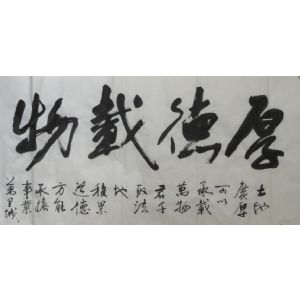 厚德載物
大地
廣厚
可以
承載
萬物
君子
取法
地
積累
道德
方能
承擔
事業
萬里城